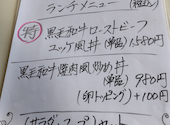 ランチメニュー (税込)
特 黒毛和牛ローストビーフ
ユッケ風丼 (単品) 1580円
黒毛和牛焼肉風炒め丼
(単品) 980円
(卵トッピング) +100円